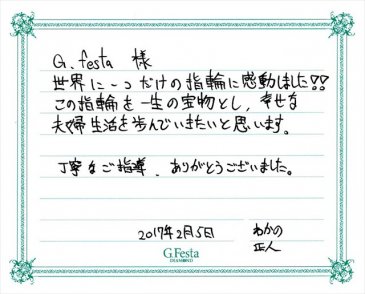 G.festa 様
世界に一つだけの指輪に感動しました!!
この指輪を一生の宝物とし、幸せな
夫婦生活を歩んでいきたいと思います。
丁寧なご指導、ありがとうございました。
2017年2月5日
わかの
正人
G.Festa
DIAMOND